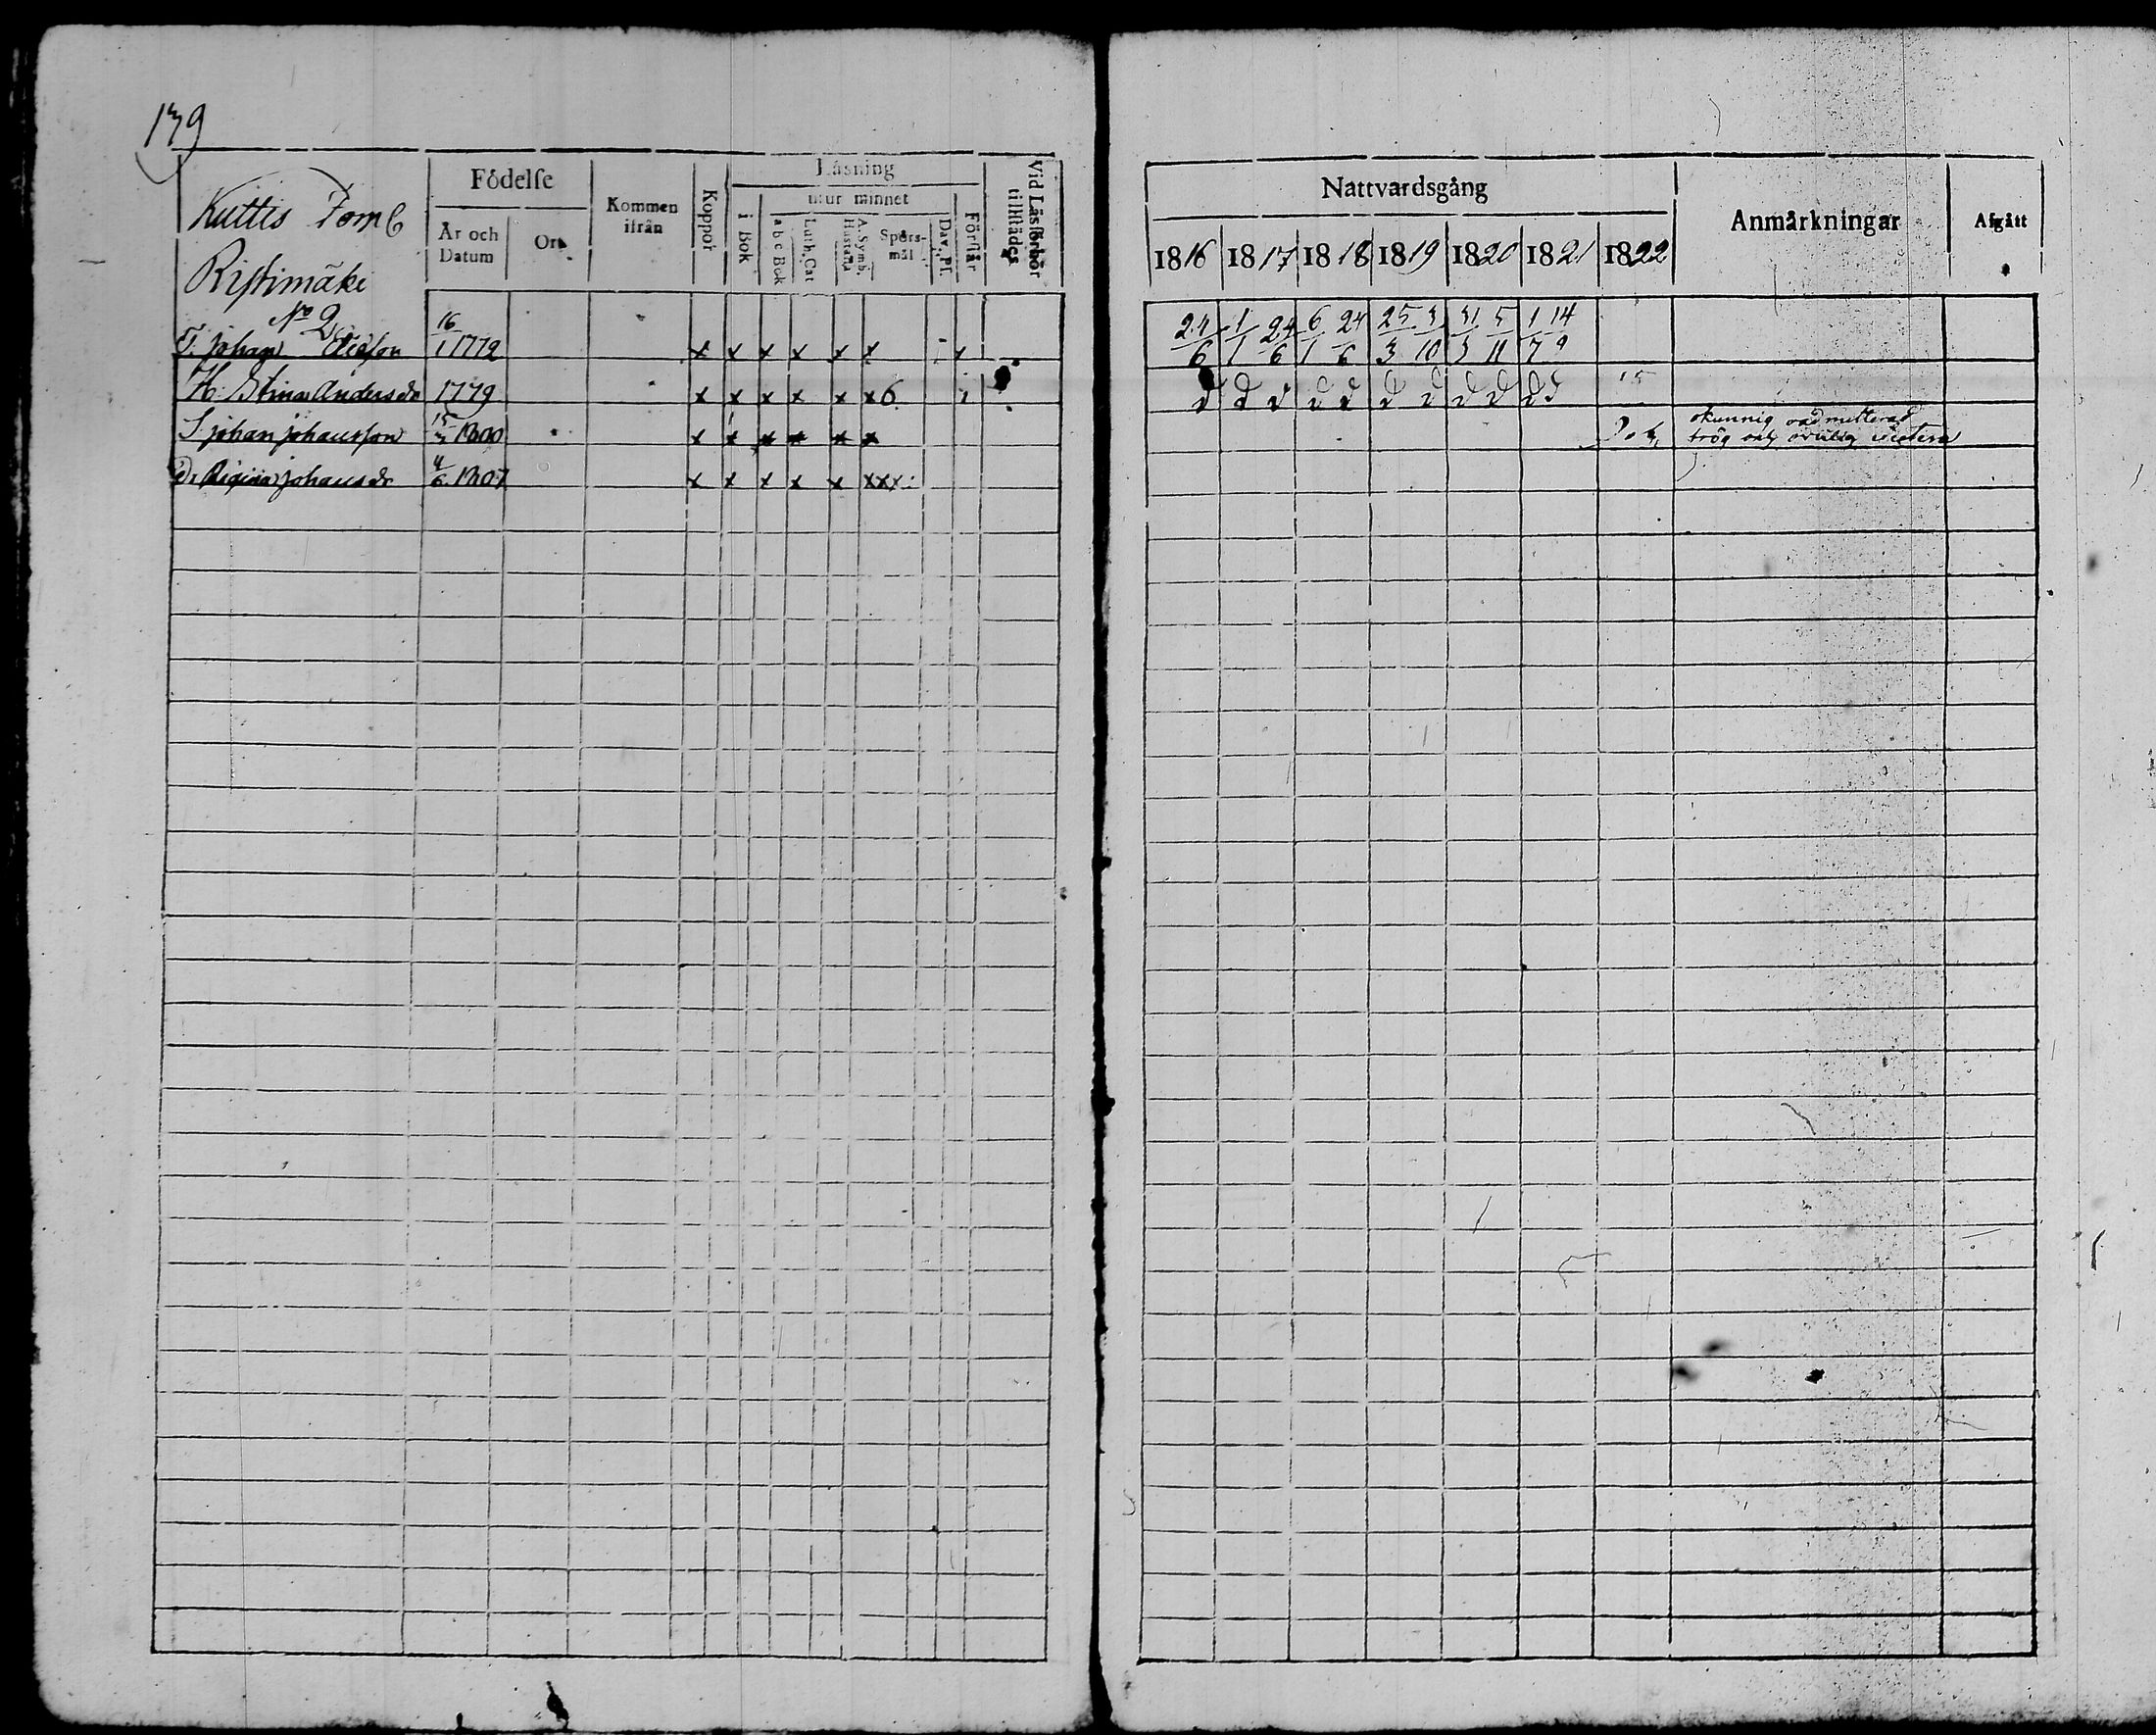 179
Födelse
Kommen ifrån
Koppor
Läsning
utur minnet
i Bok
a b c Bok
Luth. Cat
A. Symb. Hustafla
Spörs-mål
Dav. Ps.
Förstår
Vid Läsförhör tillstädes
År och Datum
Ort
Kuttis Tomb
Ristimäki
No 2
T. Johan Elieson 16/1 1772 x x x x x x x
H. Stina Andersdr 1779 x x x x x x6
S Johan Johansson 15/3 1800 x x x x x x
D. Regina Johansdr 4/6 1807 x x x x x xxx
Nattvardsgång
Anmärkningar
Afgått
1816 1817 1818 1819 1820 1821 1822
24/6 1/1 24/6 6/1 24/6 25/3 3/10 31/3 5/11 1/7 14/9
okunnig
trög och